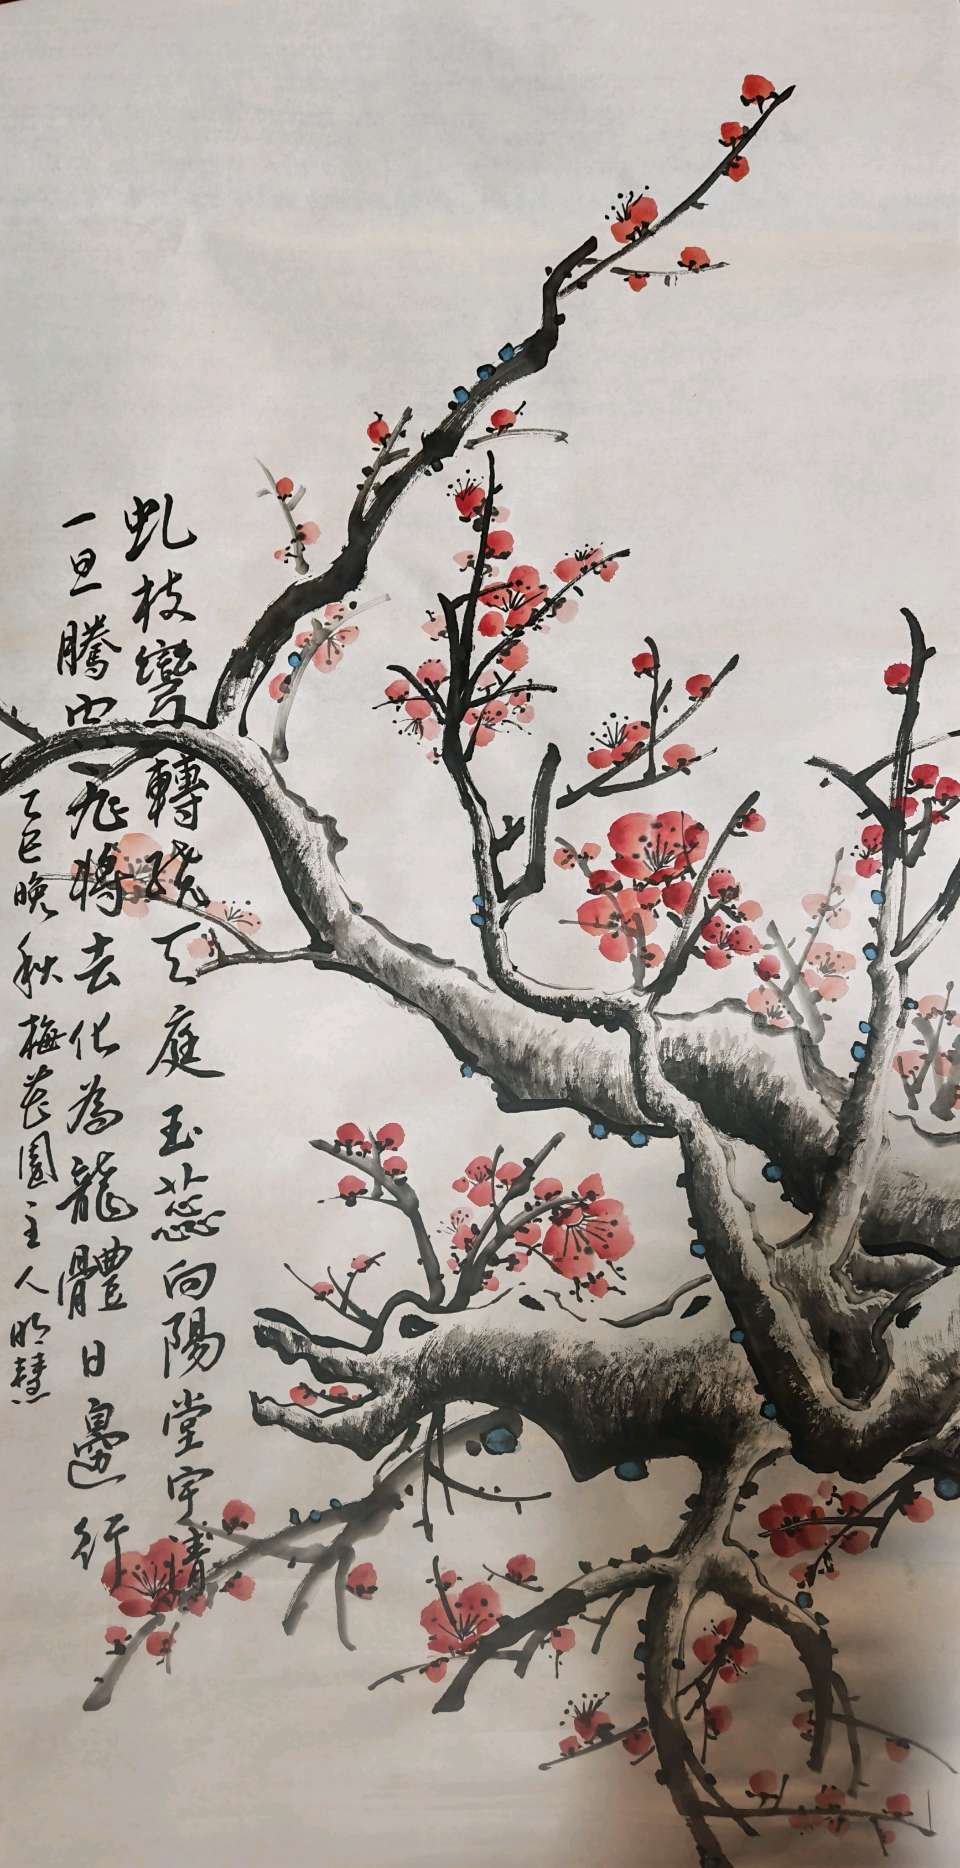 虬枝彎轉繞天庭玉蕊向陽堂宇清
一旦騰雲飛將去化為龍體日邊行
乙巳晚秋梅花園主人明慧